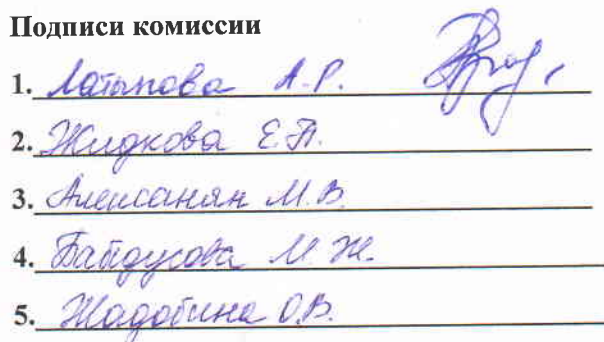 Подписи комиссии
1. Латыпова А.Р.
2. Жидкова Е.П.
3. Алексанян М.В.
4. Байдусова М.Ж.
5. Жадобина О.В.